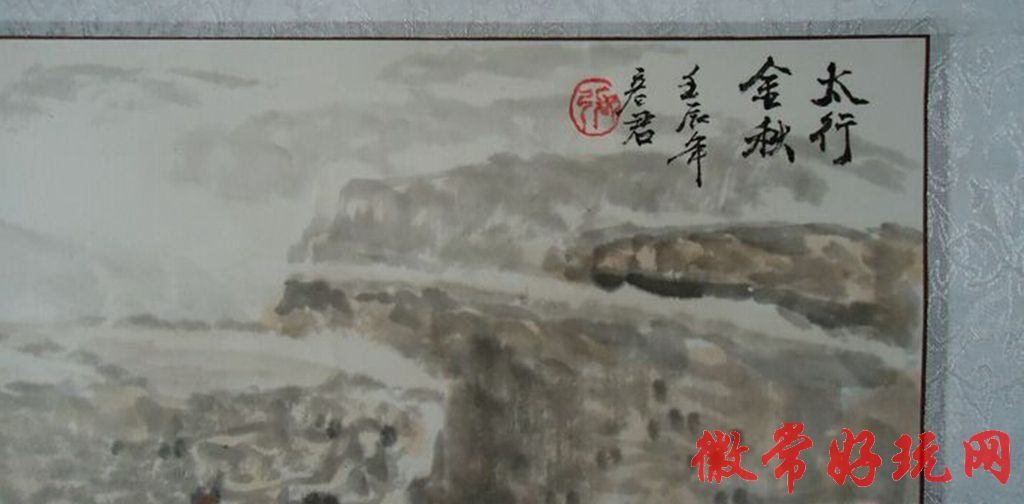 太行
金秋
壬辰年
彦君
张
徽常好玩网